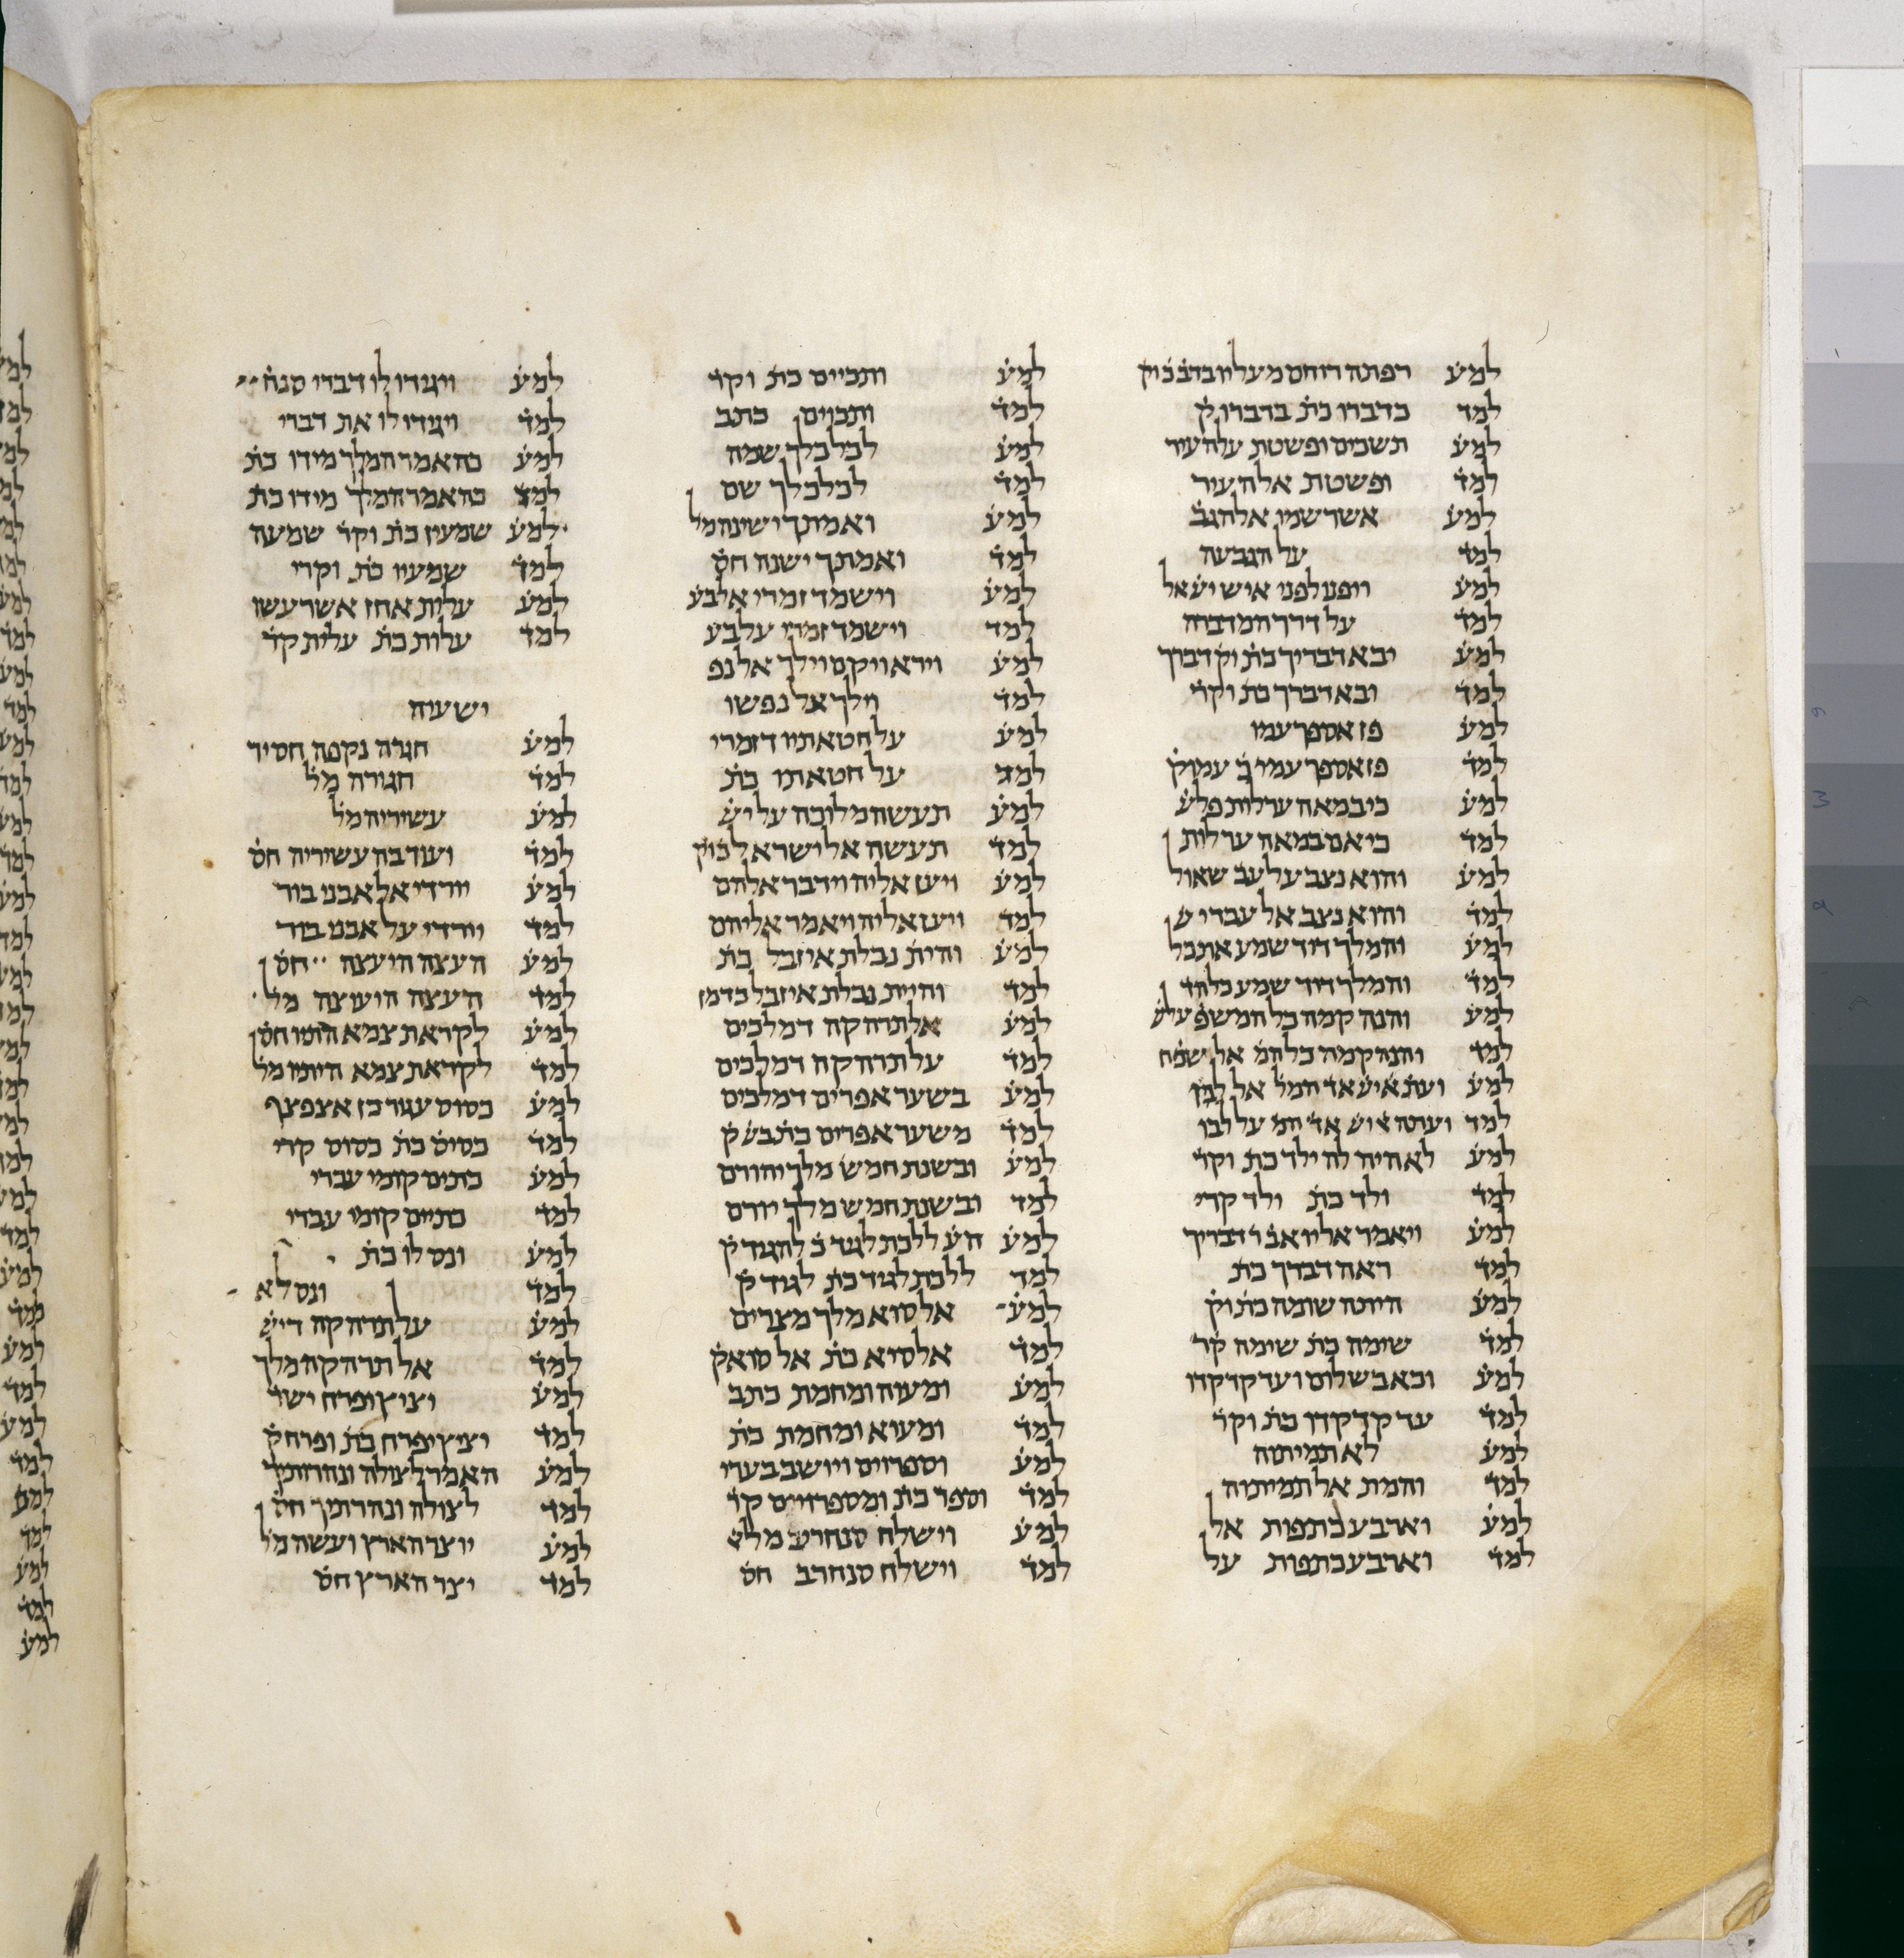 למע רפתה דוחם מעליו בדב בוק
למד בדברו כת בדברו ק
למע תשכים ופשטת על העיר
למד ופשטת אל העיר
למע אשר שמן אל הגב
למד על הגבעה
למע ויפנו לפני איש ישאל
למד על דרך המדברה
למע יבא דבריך כת וק דברך
למד ובא דברך כת וקר
למע פן אספך עמו
למד פן אספך עמו
למע כי במאה ערלות פלש
למד כי אם במאה ערלות
למע והוא נצב על עב שאול
למד והוא נצב אל עבדי ש
למע והמלך דוד שמע את כל
למד והמלך דוד שמע כל הד
למע והנה קמה כל המשפ על ש
למד והנה קמה כל המ אל שפח
למע ועת אישא אד המל אל לבו
למד ועתה אישא אד המ על לבו
למע לא היה לה ילד כת וקר
למד ולד כת ולד קרי
למע ויאמר אליו אב דבריך
למד ראה דברך כת
למע היתה שומה כת וק
למד שומה כת שימה קר
למע וכאבשלום ועד קדקדו
למד עד קדקדו כת וקר
למע לא תמיתה
למד והמת אל תמיתוה
למע וארבע כתפות אל
למד וארבע כתפות על
למע ותכיים כת וקר
למד ותכוים כתב
למע לכלכלך שמה
למד לכלכלך שם
למע ואמתך ישינה מל
למד ואמתך ישנה חס
למע וישמד זמרי אל בע
למד וישמד זמרי על בע
למע וירא ויקם וילך אל נפ
למד וילך אל נפשו
למע על חטאתיו דזמרי
למד על חטאתו כת
למע תעשה מלוכה על יש
למד תעשה אל ישראל
למע ויען אליה וידבר אלהם
למד ויען אליה ויאמר אליהם
למע והית נבלת איזבל כת
למד והיית נבלת איזבל כדמן
למע אל תרהקה דמלכים
למד על תרהקה דמלכים
למע בשער אפרים דמלכים
למד משער אפרים כת בש ק
למע ובשנת חמש מלך יהורם
למד ובשנת חמש מלך יורם
למע ללכת לגוד כ להגוד ק
למד ללכת לגוד כת לגוד ק
למע אל סוא מלך מצרים
למד אל סיא כת אל סוא ק
למע ומעוה ומחמת כתב
למד ומעוא ומחמת כת
למע וספרוים ויושב בערי
למד וספר כת ומספרויים קר
למע וישלח סנחריב מל
למד וישלח סנחרב חס
למע ויגידו לו דברי סנח
למד ויגידו לו את דברי
למע כה אמר המלך מידו כת
למד כה אמר המלך מידו כת
למע שמעיו כת וקר שמעה
למד שמעיו כת וקרי
למע עלית אחז אשר עשו
למד עלות כת עלית קר
ישעיה
למע חגרה נקפה חסיר
למד חגורה מל
למע עשיריה מל
למד ועוד בה עשיריה חס
למע יורדי אל אבני בור
למד יורדי על אבני בור
למע העצה היעצה חס
למד העצה היועצה מל
למע לקראת צמא התיו חס
למד לקראת צמא היתיו מל
למע כסוס עגור כן אצפצף
למד כסיס כת כסוס קרי
למע כתים קומי עברי
למד כתיים קומי עברי
למע ונס לו כת
למד ונס לא
למע על תרהקה דיש
למד אל תרהקה מלך
למע יציץ ופרח ישר
למד יציץ יפרח כת ופרח ק
למע האמר לצולה ונהרותיך
למד לצולה ונהרתיך חס
למע יוצר הארץ ועשה מל
למד יצר הארץ חס